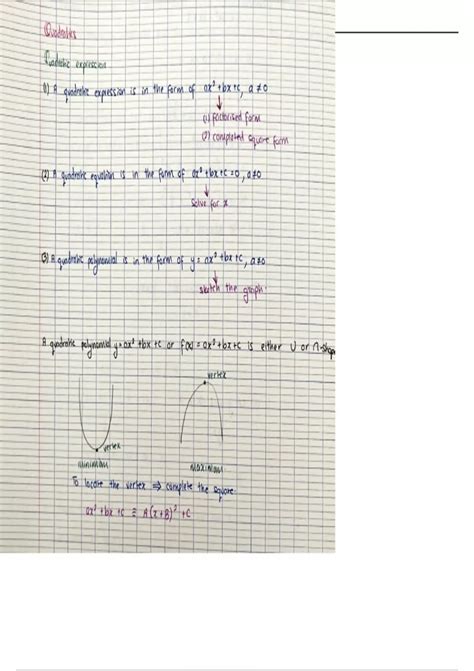 Quadratics
Quadratic expression
(1) A quadratic expression is in the form of ax² + bx + c, a ≠ 0
(1) factorised form
(2) completed square form
(2) A quadratic equation is in the form of ax² + bx + c = 0, a ≠ 0
Solve for x
(3) A quadratic polynomial is in the form of y = ax² + bx + c, a ≠ 0
sketch the graph.
A quadratic polynomial y = ax² + bx + c or f(x) = ax² + bx + c is either U or n-shape
vertex
vertex
minimum
maximum
To locate the vertex ⇒ complete the square.
ax² + bx + c ≡ A(x+B)² + C